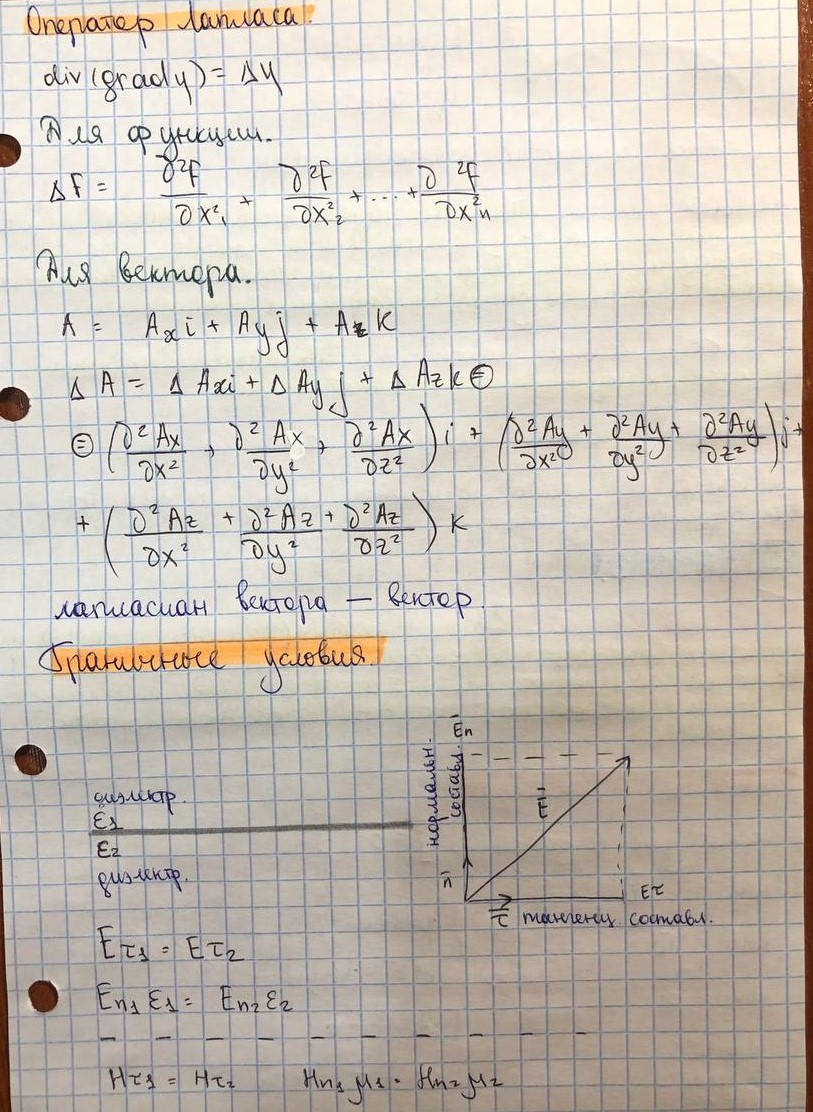 Оператор Лапласа.
div(grad y) = Δy
Для функции.
ΔF = ∂²F/∂x²₁ + ∂²F/∂x²₂ + ... + ∂²F/∂x²ₙ
Для вектора.
A = Axi + Ayj + Azk
ΔA = ΔAxi + ΔAyj + ΔAzk ⊜
⊜ (∂²Ax/∂x² + ∂²Ax/∂y² + ∂²Ax/∂z²)i + (∂²Ay/∂x² + ∂²Ay/∂y² + ∂²Ay/∂z²)j +
+ (∂²Az/∂x² + ∂²Az/∂y² + ∂²Az/∂z²)k
лапласиан вектора — вектор.
Граничные условия.
диэлектр.
ε₁
ε₂
диэлектр.
E̅n
нормальн.
составл.
E̅
n̅
Eτ
τ̅ тангенц. составл.
Eτ₁ = Eτ₂
En₁ε₁ = En₂ε₂
Hτ₁ = Hτ₂ Hn₁μ₁ = Hn₂μ₂